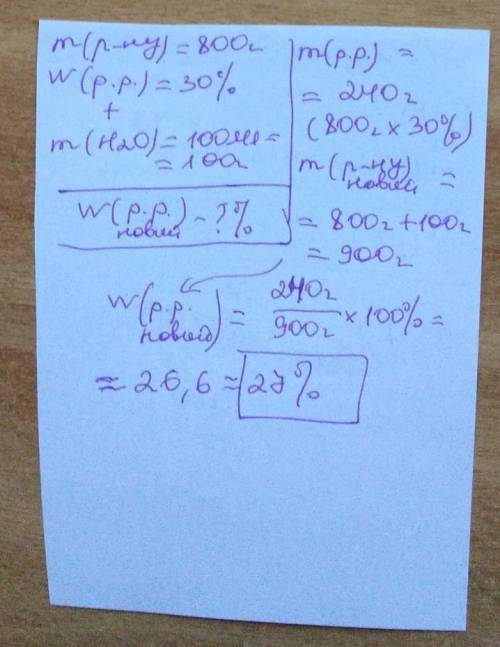 m(р-ну) = 800г
W(р.р.) = 30%
+
m(H2O) = 100мл =
= 100г
W(р.р. новий) - ?%
m(р.р.) =
= 240г
(800г x 30%)
m(р-ну) новий =
= 800г + 100г
= 900г
W(р.р. новий) = 240г / 900г x 100% =
≈ 26,6 ≈ 27%